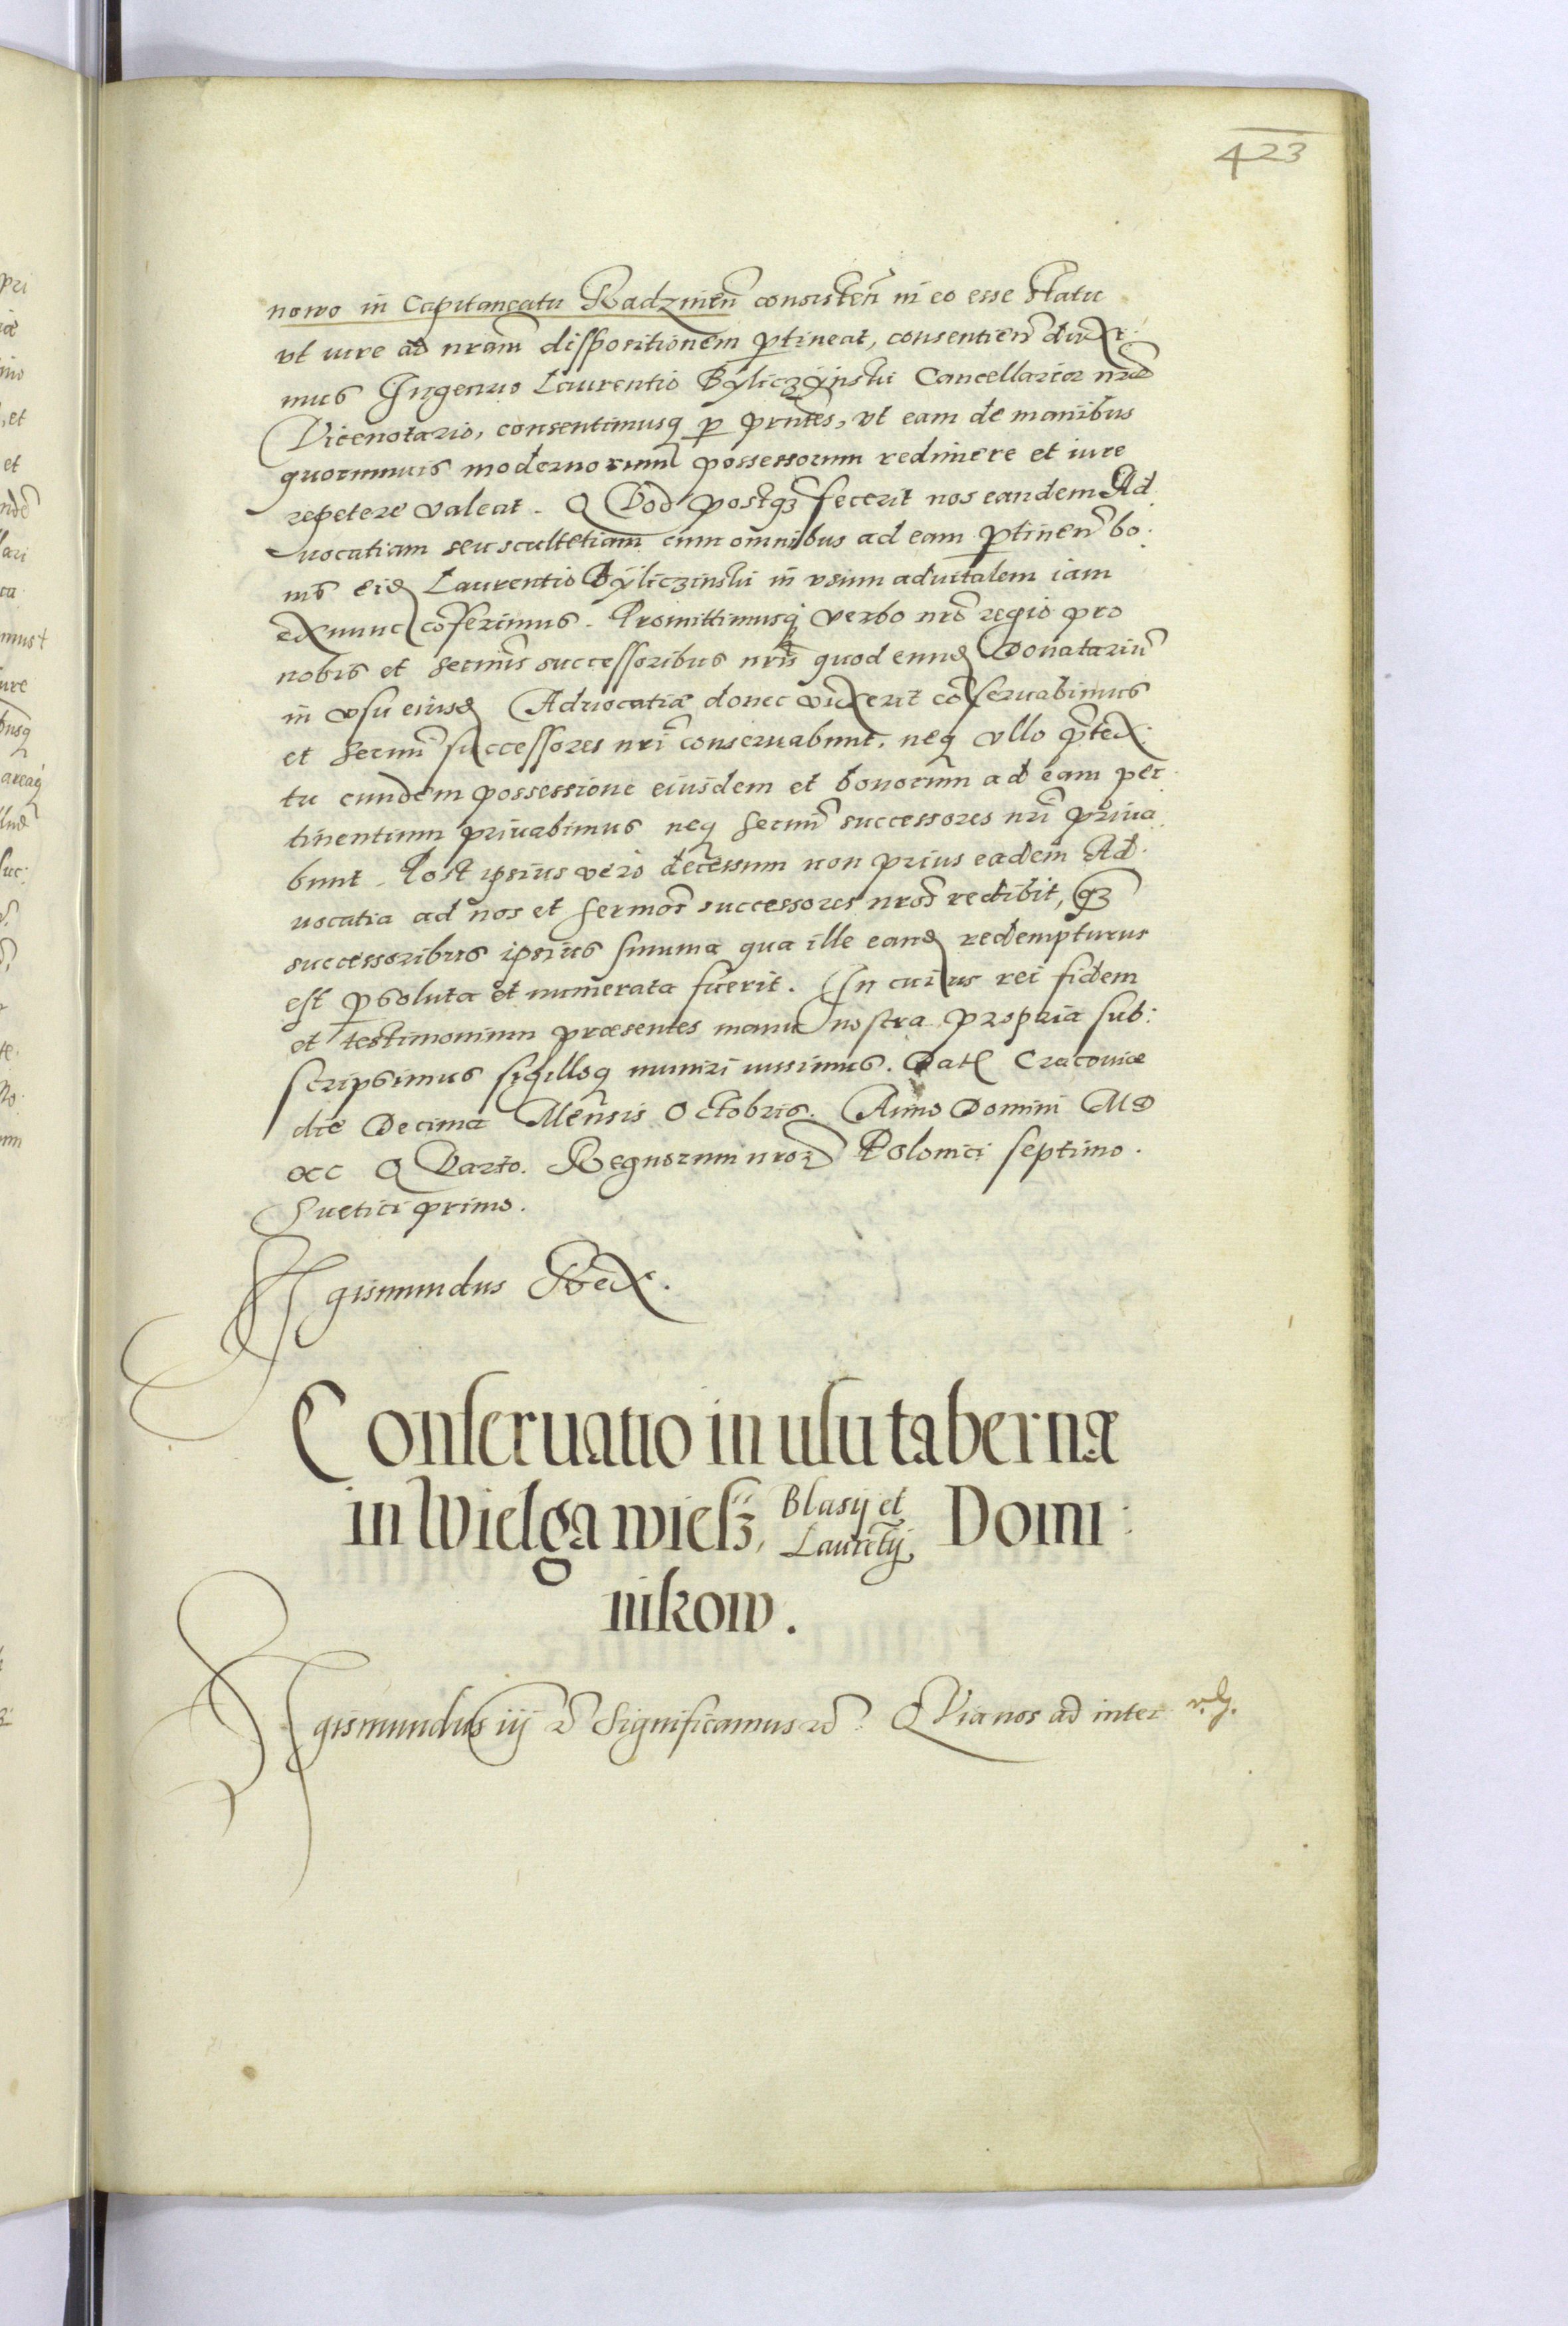 423
nowo in Capitaneatu Radzinen̄ consisten̄ in eo esse statu
vt iure ad nram̄ dispositionem ꝑtineat, consentien̄ duxi:
mus Ingenuo Laurentio Byliczÿnski Cancellariæ nr̄æ
Vicenotario, consentimusq̨ ꝑ prn̄tes, vt eam de manibus
quorumuis modernorum possessorum redimere et iure
repetere valeat. QVod postq̄ʒ fecerit nos eandem Ad
uocatiam seu scultetiam cum omnibus ad eam ꝑtinen̄ bo:
nis eid̄ Laurentio Bÿliczinski in vsum aduitalem iam
ex nunc cōferimus. Promittimusq̨ verbo nr̄o regio pro
nobis et Sermīs successoribus nr̄is quod eund̄ Donatariū
in vsu eiusd̄ Aduocatiæ donec vixerit cōseruabimus
et Sermī successores nr̄i conseruabunt, neq̨ vllo p̄tex:
tu eundem possessione eiusdem et bonorum ad eam per
tinentium priuabimus neq̨ Sermī successores nr̄i priua
bunt. Post ipsius vero decessum non prius eadem Ad:
uocatia ad nos et Sermos̄ successores nros̄ redibit, q̄ʒ
successoribus ipsius summa qua ille eand̄ redempturus
est ꝑsoluta et numerata fuerit. In cuius rei fidem
et testimonium præsentes manu nostra propria sub:
scripsimus sigilloq̨ muniri iussimus. Dat̄ Cracouiæ
die Decima Mensis Octobris. Anno Domini MD
XC QVarto. Regnorum nror̄ Polonici septimo.
Suetici primo.
Sigismundus Rex.
Conseruatio in usu tabernæ
in Wielga wiesz, Blasij et Laurētij Domi:
nikow.
Sigismundus iij &c̄ Significamus &c̄. QVia nos ad inter